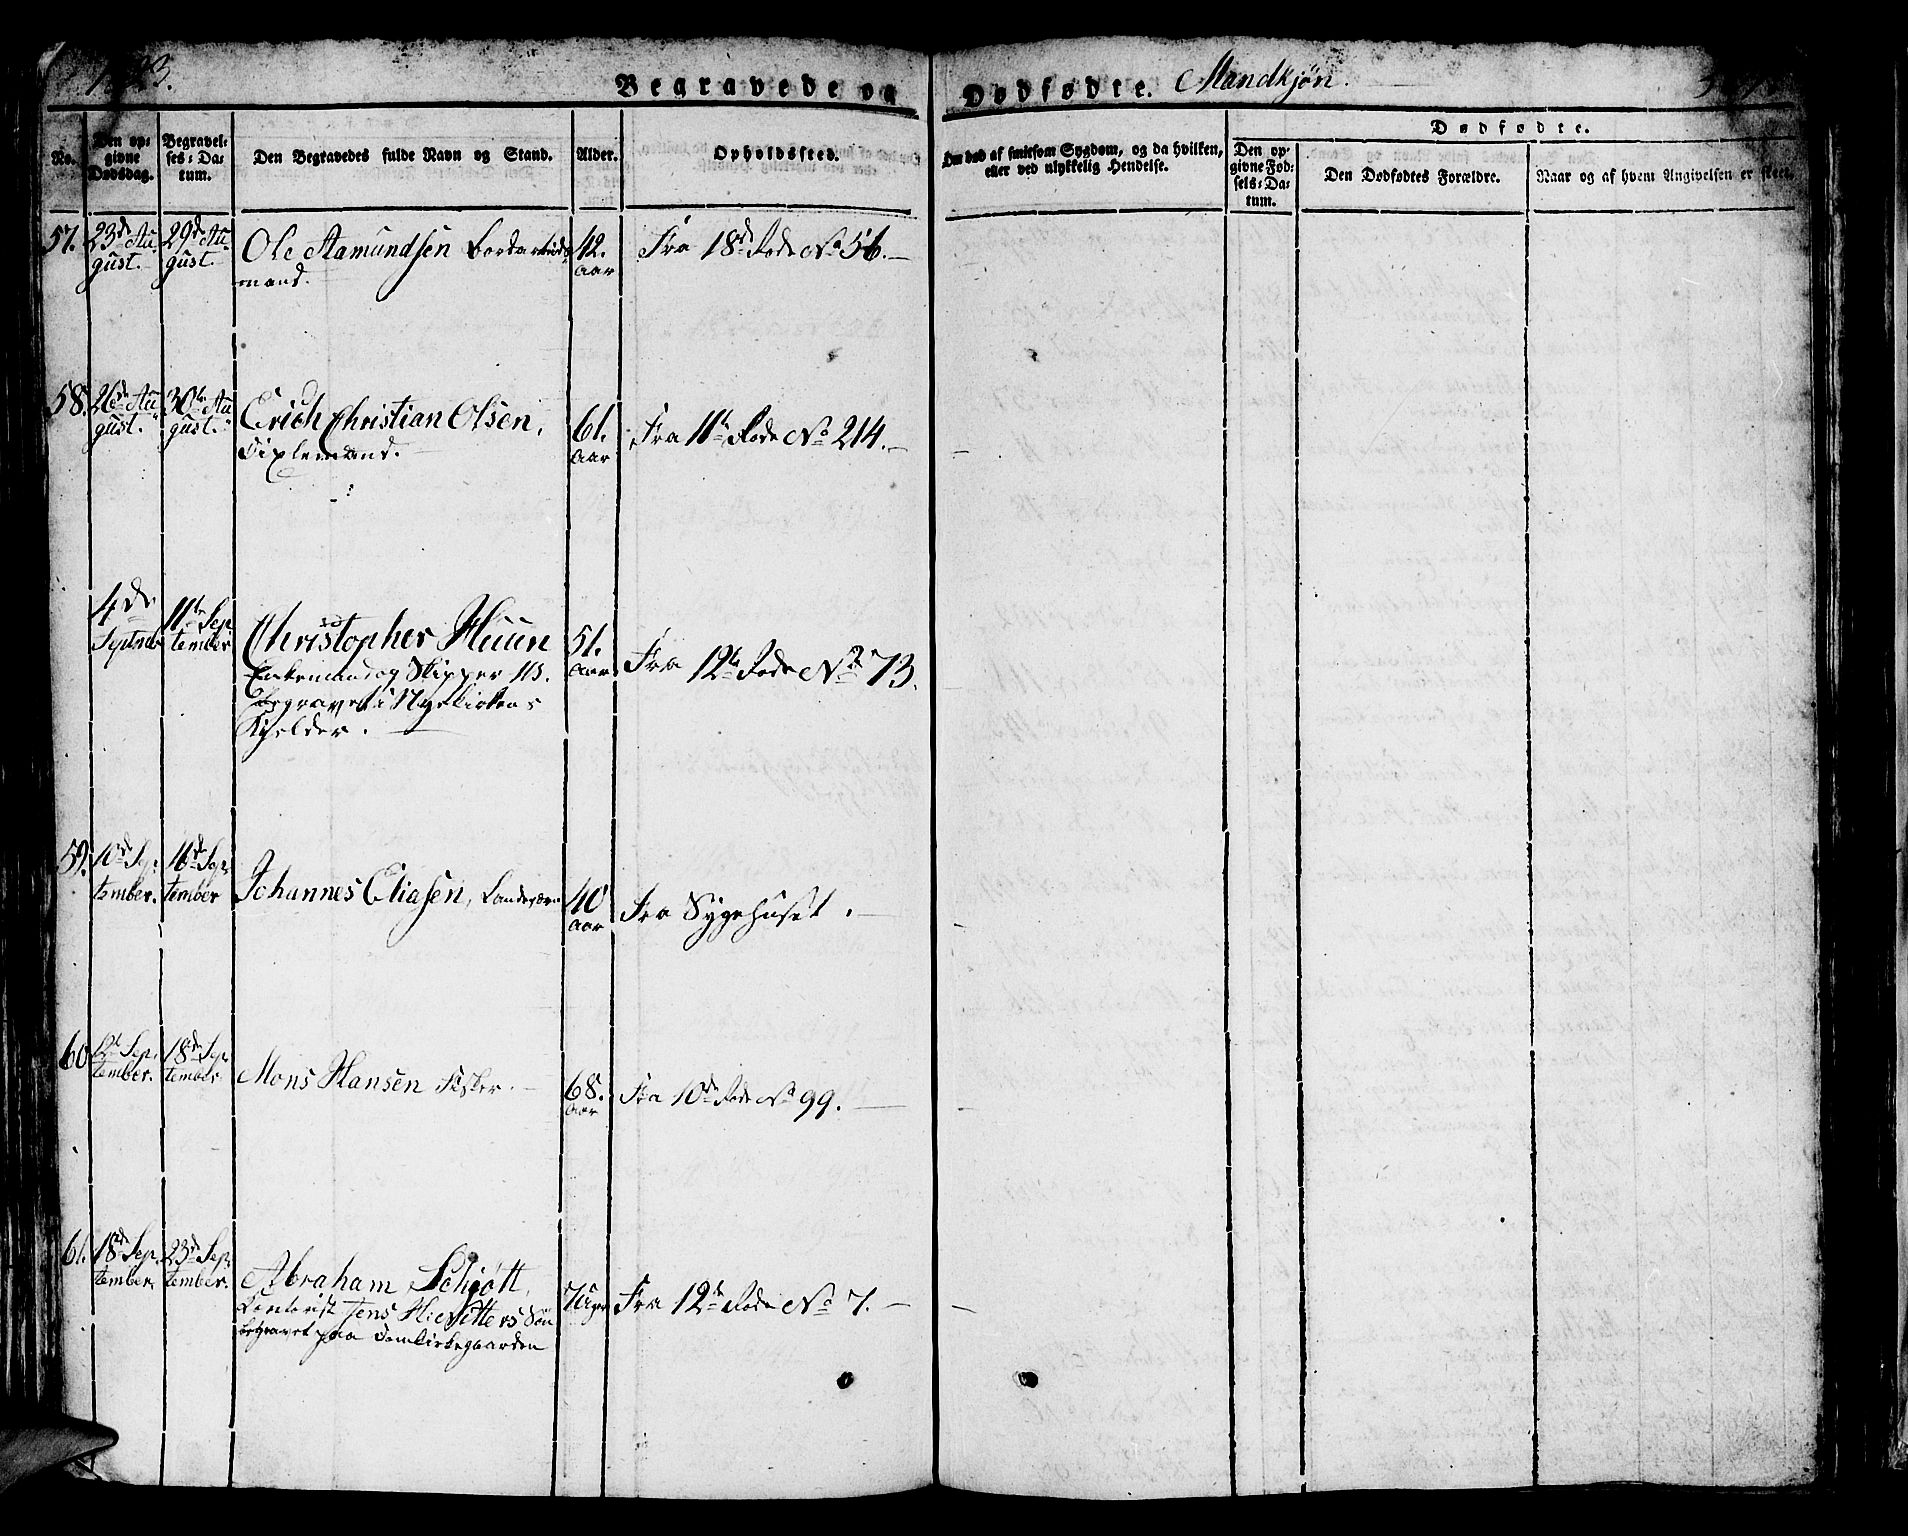 1823.
Begravede og
Dødfødte. Mandkjøn.
No.
Den op-
givne
Dødsdag.
Begravel-
ses-Da-
tum.
Den Begravedes fulde Navn og Stand.
Alder.
Opholdssted.
Om død af smitsom Sygdom, og da hvilken,
eller ved ulykkelig Hendelse.
Dødfødte.
Den op-
givne Fød-
sels-Da-
tum.
Den Dødfødtes Forældre.
Naar og af hvem Angivelsen er skeet.
57. 23de Au-
gust.
29de Au-
gust.
Ole Aamundsen
mand.
42.
Aar
Fra 18de Rode No 56.
58. 26de Au-
gust.
30te Au-
gust.
Erich Christian Olsen,
Fixlemand.
61.
Aar
Fra 11te Rode No 214.
4de
11te Sep
tember
Christopher Huun
Enkemand og Skipper
Begravet i Nyekirkens
Kjelder.
51.
Aar
Fra 12te Rode No 73.
59. 10de Sep
tember.
16de Sep
tember
Johannes Eliasen,
40
Aar
Fra Sygehuset.
60 12te Sep
tember.
18de Sep
tember.
Mons Hansen Fisker.
68.
Aar
Fra 10de Rode No 99.
61. 18de Sep
tember.
23de Sep
tember.
Abraham Schjøtt,
Jens Søn
begravet paa Domkirkegaarden
Fra 12te Rode No 7.